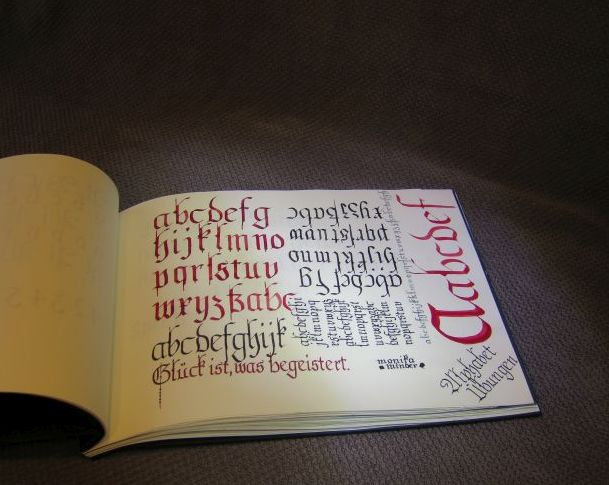 abcdefg
hijklmno
pqrſstuv
wxyzßabc
abcdefghijk
Glück ist, was begeistert.
abcdefg
hijklmno
pqrſstuvw
xyzßabc
monika
minder
Aabcdef
Alphabet
Übungen